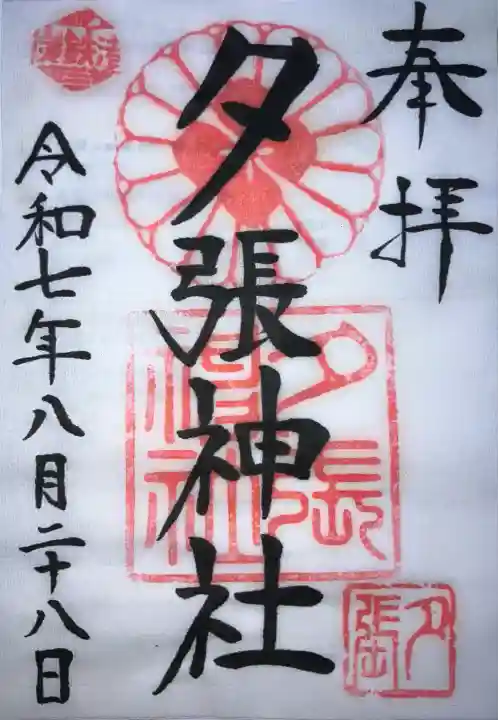 奉拝
夕張神社
令和七年八月二十八日
夕張
神社
夕張